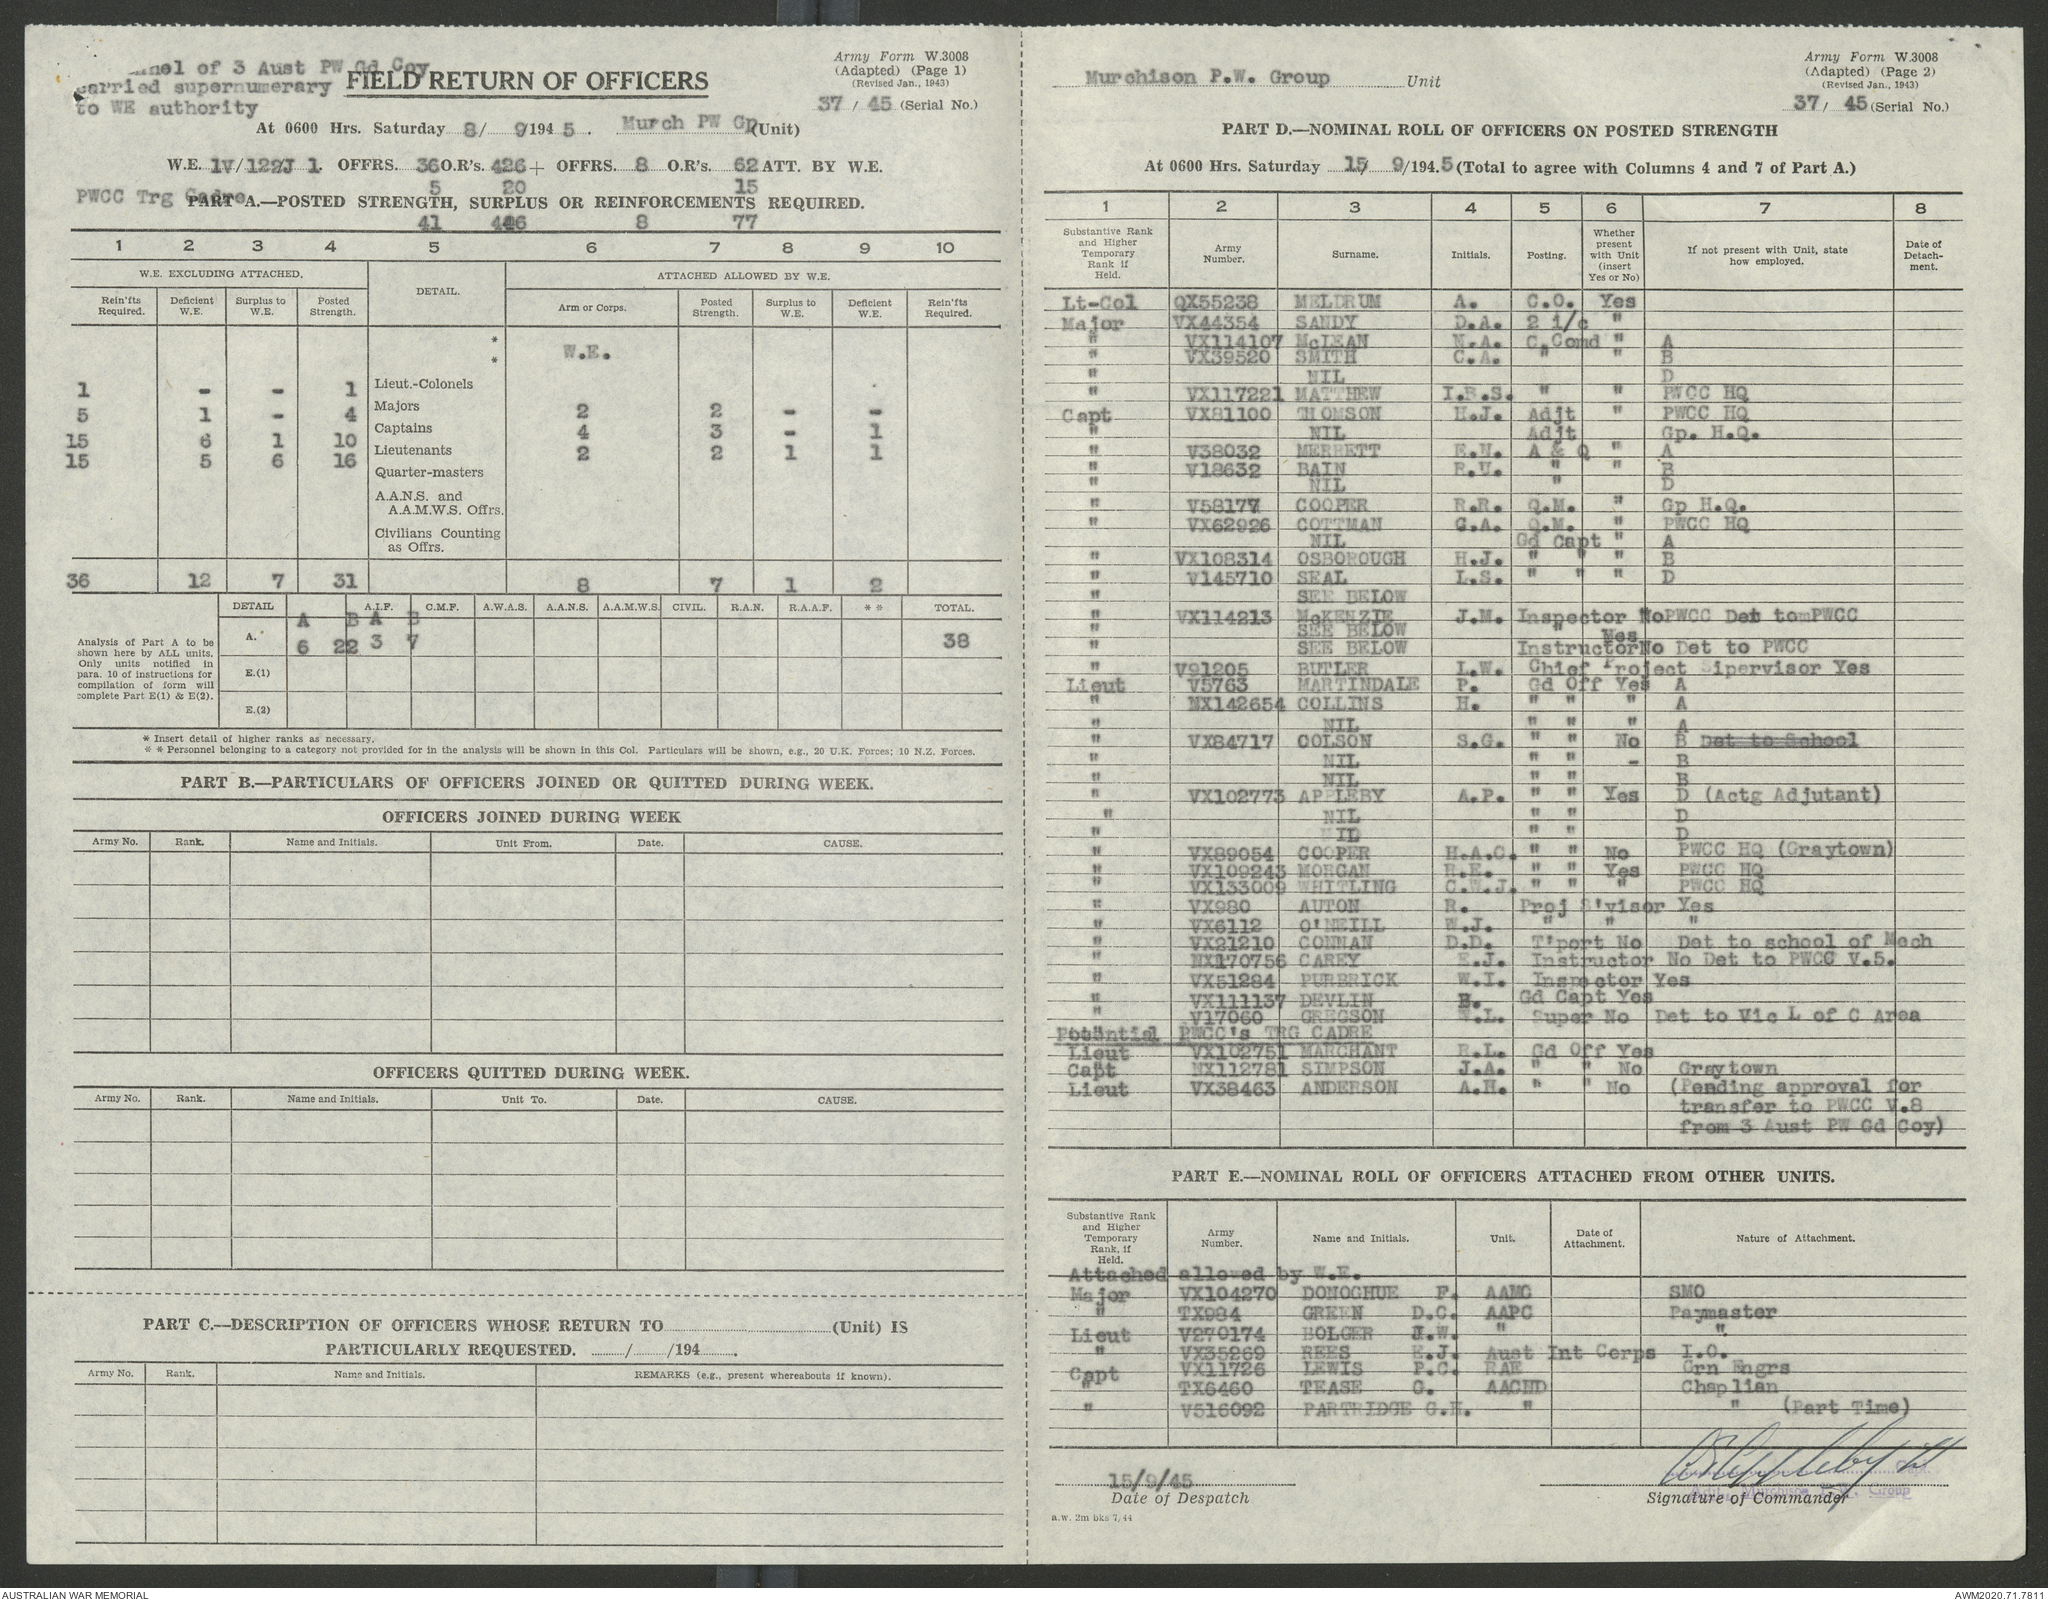 nel of 3 Aust PW Gd Coy
carried supernumerary
to WE authority
FIELD RETURN OF OFFICERS
Army Form W.3008
(Adapted) (Page 1)
(Revised Jan., 1943)
37 / 45 (Serial No.)
At 0600 Hrs. Saturday 8/ 9/194 5 . Murch PW Gp (Unit)
W.E. 1V/122J 1. OFFRS. 36 O.R's. 426 + OFFRS. 8 O.R's. 62 ATT. BY W.E.
PWCC Trg Cadre 5 20 15
PART A.—POSTED STRENGTH, SURPLUS OR REINFORCEMENTS REQUIRED.
41 446 8 77
1 2 3 4 5 6 7 8 9 10
W.E. EXCLUDING ATTACHED. DETAIL. ATTACHED ALLOWED BY W.E.
Rein'fts Required. Deficient W.E. Surplus to W.E. Posted Strength. Arm or Corps. Posted Strength. Surplus to W.E. Deficient W.E. Rein'fts Required.
*
* W.E.
1 - - 1 Lieut.-Colonels
5 1 - 4 Majors 2 2 - -
15 6 1 10 Captains 4 3 - 1
15 5 6 16 Lieutenants 2 2 1 1
Quarter-masters
A.A.N.S. and
A.A.M.W.S. Offrs.
Civilians Counting
as Offrs.
36 12 7 31 8 7 1 2
DETAIL A.I.F. C.M.F. A.W.A.S. A.A.N.S. A.A.M.W.S. CIVIL. R.A.N. R.A.A.F. * * TOTAL.
A B A B
A. 6 22 3 7 38
E.(1)
E.(2)
Analysis of Part A to be
shown here by ALL units.
Only units notified in
para. 10 of instructions for
compilation of form will
complete Part E(1) & E(2).
* Insert detail of higher ranks as necessary.
* * Personnel belonging to a category not provided for in the analysis will be shown in this Col. Particulars will be shown, e.g., 20 U.K. Forces; 10 N.Z. Forces.
PART B.—PARTICULARS OF OFFICERS JOINED OR QUITTED DURING WEEK.
OFFICERS JOINED DURING WEEK
Army No. Rank. Name and Initials. Unit From. Date. CAUSE.
OFFICERS QUITTED DURING WEEK.
Army No. Rank. Name and Initials. Unit To. Date. CAUSE.
PART C.—DESCRIPTION OF OFFICERS WHOSE RETURN TO (Unit) IS
PARTICULARLY REQUESTED. / /194 .
Army No. Rank. Name and Initials. REMARKS (e.g., present whereabouts if known).
Murchison P.W. Group Unit
Army Form W.3008
(Adapted) (Page 2)
(Revised Jan., 1943)
37/ 45 (Serial No.)
PART D.—NOMINAL ROLL OF OFFICERS ON POSTED STRENGTH
At 0600 Hrs. Saturday 15/ 9/194.5 (Total to agree with Columns 4 and 7 of Part A.)
1 2 3 4 5 6 7 8
Substantive Rank and Higher Temporary Rank if Held. Army Number. Surname. Initials. Posting. Whether present with Unit (insert Yes or No) If not present with Unit, state how employed. Date of Detach-ment.
Lt-Col QX55238 MELDRUM A. C.O. Yes
Major VX44354 SANDY D.A. 2 i/c "
" VX114107 McLEAN N.A. C.Comd " A
" VX39520 SMITH C.A. " " B
" NIL " D
" VX117221 MATTHEW I.R.S. " " PWCC HQ
Capt VX81100 THOMSON H.J. Adjt " PWCC HQ
" NIL Adjt Gp. H.Q.
" V38032 MERRETT E.N. A & Q " A
" V18632 BAIN R.U. " " B
" NIL " D
" V58177 COOPER R.R. Q.M. " Gp H.Q.
" VX62926 COTTMAN C.A. Q.M. " PWCC HQ
NIL Gd Capt " A
" VX108314 OSBOROUGH H.J. " " " B
" V145710 SEAL L.S. " " " D
" SEE BELOW
" VX114213 McKENZIE J.M. Inspector No PWCC Det to PWCC
" SEE BELOW " Yes
" SEE BELOW Instructor No Det to PWCC
" V91205 BUTLER L.W. Chief Project Sipervisor Yes
Lieut V5763 MARTINDALE P. Gd Off Yes A
" NX142654 COLLINS H. " " " A
" NIL " " " A
" VX84717 COLSON S.G. " " No B Det to School
" NIL " " - B
" NIL " " B
" VX102773 APPLEBY A.P. " " Yes D (Actg Adjutant)
" NIL " " D
" NIL " " D
" VX89054 COOPER H.A.C. " " No PWCC HQ (Graytown)
" VX109243 MORGAN R.E. " " Yes PWCC HQ
" VX133009 WHITLING C.W.J. " " " PWCC HQ
" VX980 AUTON R. Proj S'visor Yes
" VX6112 O'NEILL W.J. " " "
" VX21210 CONNAN D.D. T'port No Det to school of Mech
" NX170756 CAREY E.J. Instructor No Det to PWCC V.5.
" VX51284 PURBRICK W.I. Inspector Yes
" VX111137 DEVLIN B. Gd Capt Yes
" V17060 GREGSON W.L. Super No Det to Vic L of C Area
Potential PWCC's TRG CADRE
Lieut VX102751 MARCHANT R.L. Gd Off Yes
Capt NX112781 SIMPSON J.A. " " No Graytown
Lieut VX38463 ANDERSON A.H. " " No (Pending approval for
transfer to PWCC V.8
from 3 Aust PW Gd Coy)
PART E.—NOMINAL ROLL OF OFFICERS ATTACHED FROM OTHER UNITS.
Substantive Rank and Higher Temporary Rank, if Held. Army Number. Name and Initials. Unit. Date of Attachment. Nature of Attachment.
Attached allowed by W.E.
Major VX104270 DONOGHUE F. AAMC SMO
" TX984 GREEN D.C. AAPC Paymaster
Lieut V270174 BOLGER J.W. " "
" VX35269 REES E.J. Aust Int Corps I.O.
Capt VX11726 LEWIS P.C. RAE Grn Engrs
" TX6460 TEASE G. AACHD Chaplian
" V516092 PARTRIDGE G.H. " " (Part Time)
15/9/45
Date of Despatch
Signature of Commander
Adjt. Murchison P.W. Group
a.w. 2m bks 7/44
AUSTRALIAN WAR MEMORIAL
AWM2020.71.7811